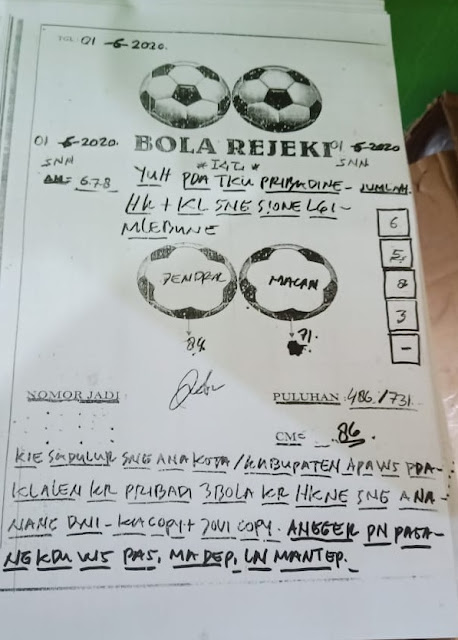 TGL: 01-6-2020.
01-6-2020.
SNN
AM: 6.7.8
BOLA REJEKI
*IGL*
01 6-2020
SNN
YUH PDA TKU PRIBADINE- JUMLAH.
HK + KL SNE SIONE LGI-
MLEBUNE
6
5
8
3
-
JENDRAL
MACAN
84
71.
NOMOR JADI
PULUHAN 486./731.
CMC 86.
KIE SADULUR SNG ANA KOTA/KABUPATEN APA WS PDA-
KLALEN KR PRIBADI 3 BOLA KR HKNE SNG ANA-
NANG DNI- KA COPY + JOVI COPY. ANGGER PN PASA-
NG KDU WS PAS, MADEP, LN MANTEP.